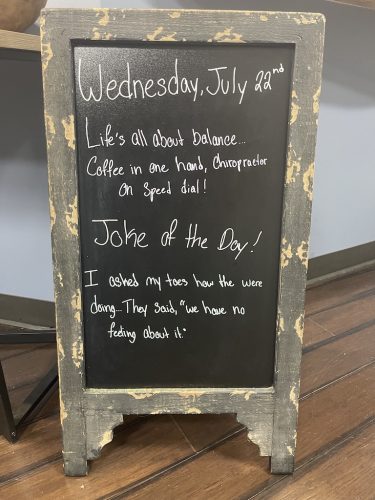 Wednesday, July 22nd
Life's all about balance...
Coffee in one hand, Chiropractor
on speed dial!
Joke of the Day!
I asked my toes how the were
doing... They said, "we have no
feeling about it."